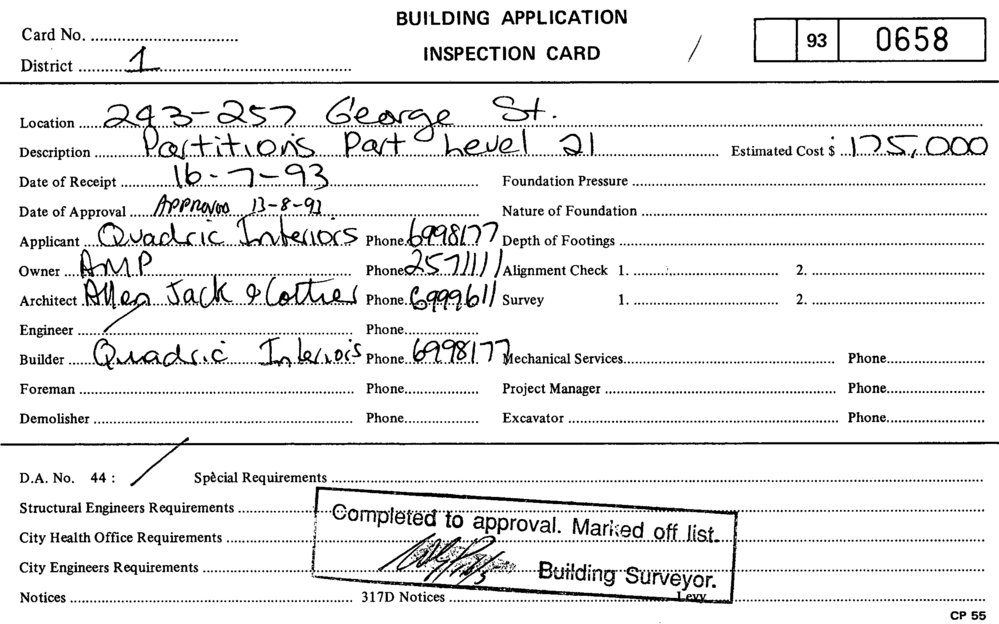 BUILDING APPLICATION
INSPECTION CARD
Card No.
District 1
93 0658
Location 243-257 George St.
Description Partitions Part Level 21 Estimated Cost $ 175,000
Date of Receipt 16-7-93 Foundation Pressure
Date of Approval APPROVED 13-8-93 Nature of Foundation
Applicant Quadric Interiors Phone 6998177 Depth of Footings
Owner AMP Phone 2571111 Alignment Check 1. 2.
Architect Allen Jack & Cottier Phone 6999611 Survey 1. 2.
Engineer Phone
Builder Quadric Interiors Phone 6998177 Mechanical Services Phone
Foreman Phone Project Manager Phone
Demolisher Phone Excavator Phone
D.A. No. 44 : Special Requirements
Structural Engineers Requirements
Completed to approval. Marked off list.
City Health Office Requirements
City Engineers Requirements
Building Surveyor.
Notices 317D Notices Levy
CP 55